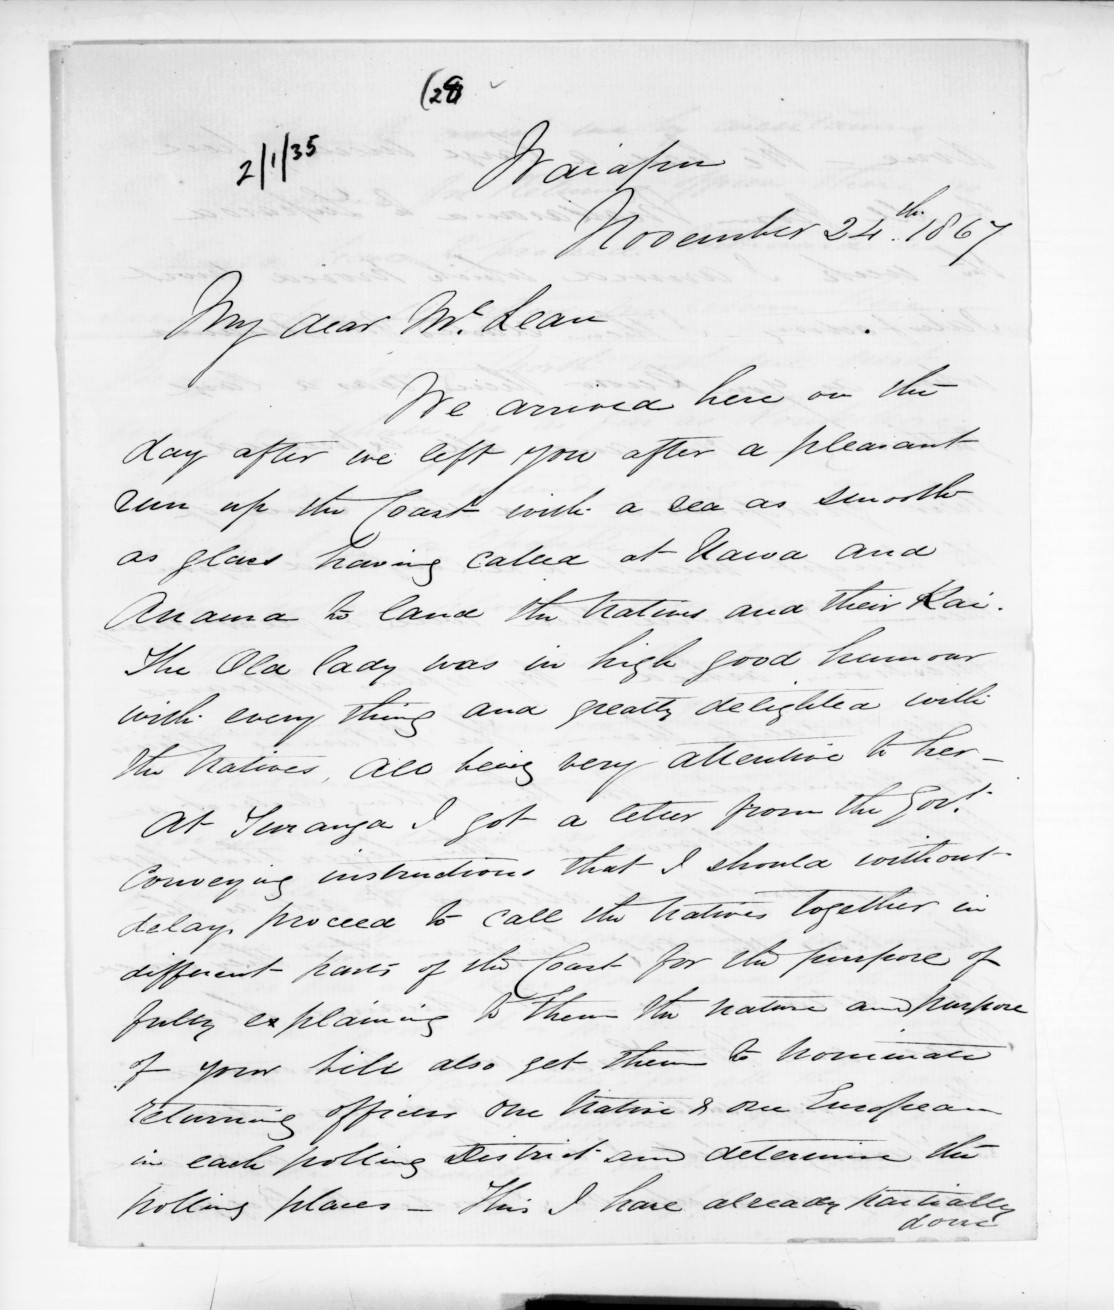 (28
2/1/35
Waiapu
November 24th. 1867
My dear Mc. Lean
We arrived here on the
day after we left you after a pleasant
run up the Coast with a sea as smooth
as glass having called at Nawa and
Anaura to land the Natives and their Kai.
The Old lady was in high good humour
with every thing and greatly delighted with
the Natives, all being very attentive to her –
At Turanga I got a letter from the Govt.
Conveying instructions that I should without
delay proceed to call the Natives together in
different parts of the Coast for the purpose of
fully explaining to them the nature and purpose
of your bill also get them to nominate
returning officers one Native & one European
in each polling District and determine the
polling places – This I have already partially
done